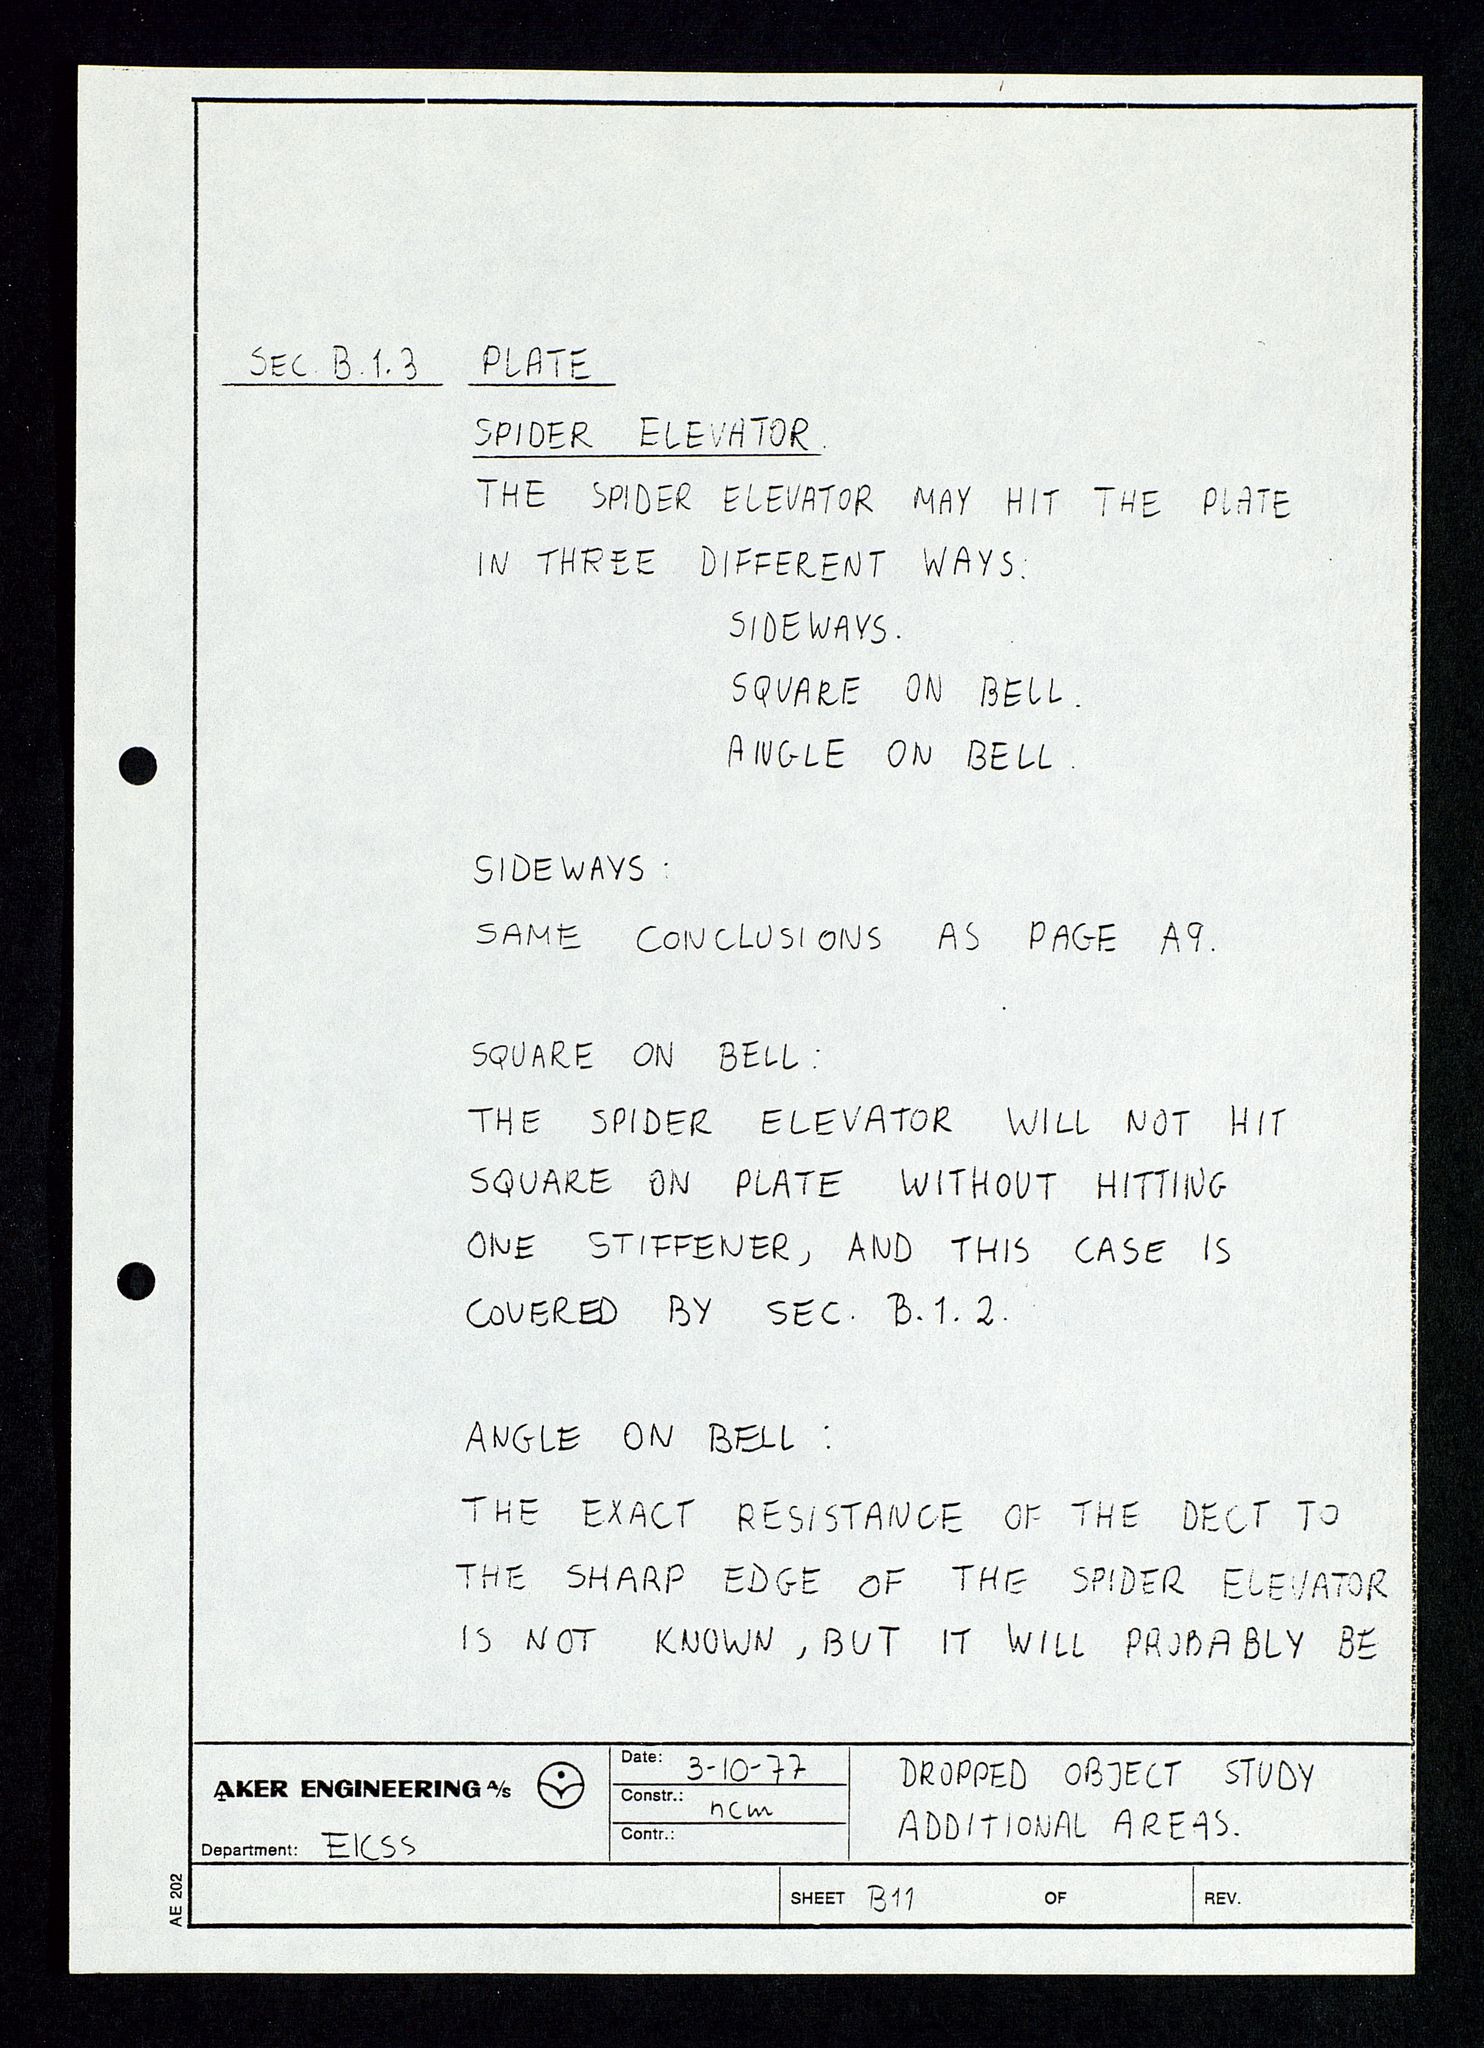 SEC. B.1.3 PLATE
SPIDER ELEVATOR.
THE SPIDER ELEVATOR MAY HIT THE PLATE
IN THREE DIFFERENT WAYS:
SIDEWAYS.
SQUARE ON BELL.
ANGLE ON BELL.
SIDEWAYS:
SAME CONCLUSIONS AS PAGE A9.
SQUARE ON BELL:
THE SPIDER ELEVATOR WILL NOT HIT
SQUARE ON PLATE WITHOUT HITTING
ONE STIFFENER, AND THIS CASE IS
COVERED BY SEC. B.1.2.
ANGLE ON BELL:
THE EXACT RESISTANCE OF THE DECT TO
THE SHARP EDGE OF THE SPIDER ELEVATOR
IS NOT KNOWN, BUT IT WILL PROBABLY BE
AKER ENGINEERING A/S
Department: EKSS
Date: 3-10-77
Constr.: ncm
Contr.:
DROPPED OBJECT STUDY
ADDITIONAL AREAS.
SHEET B11 OF
REV.
AE 202